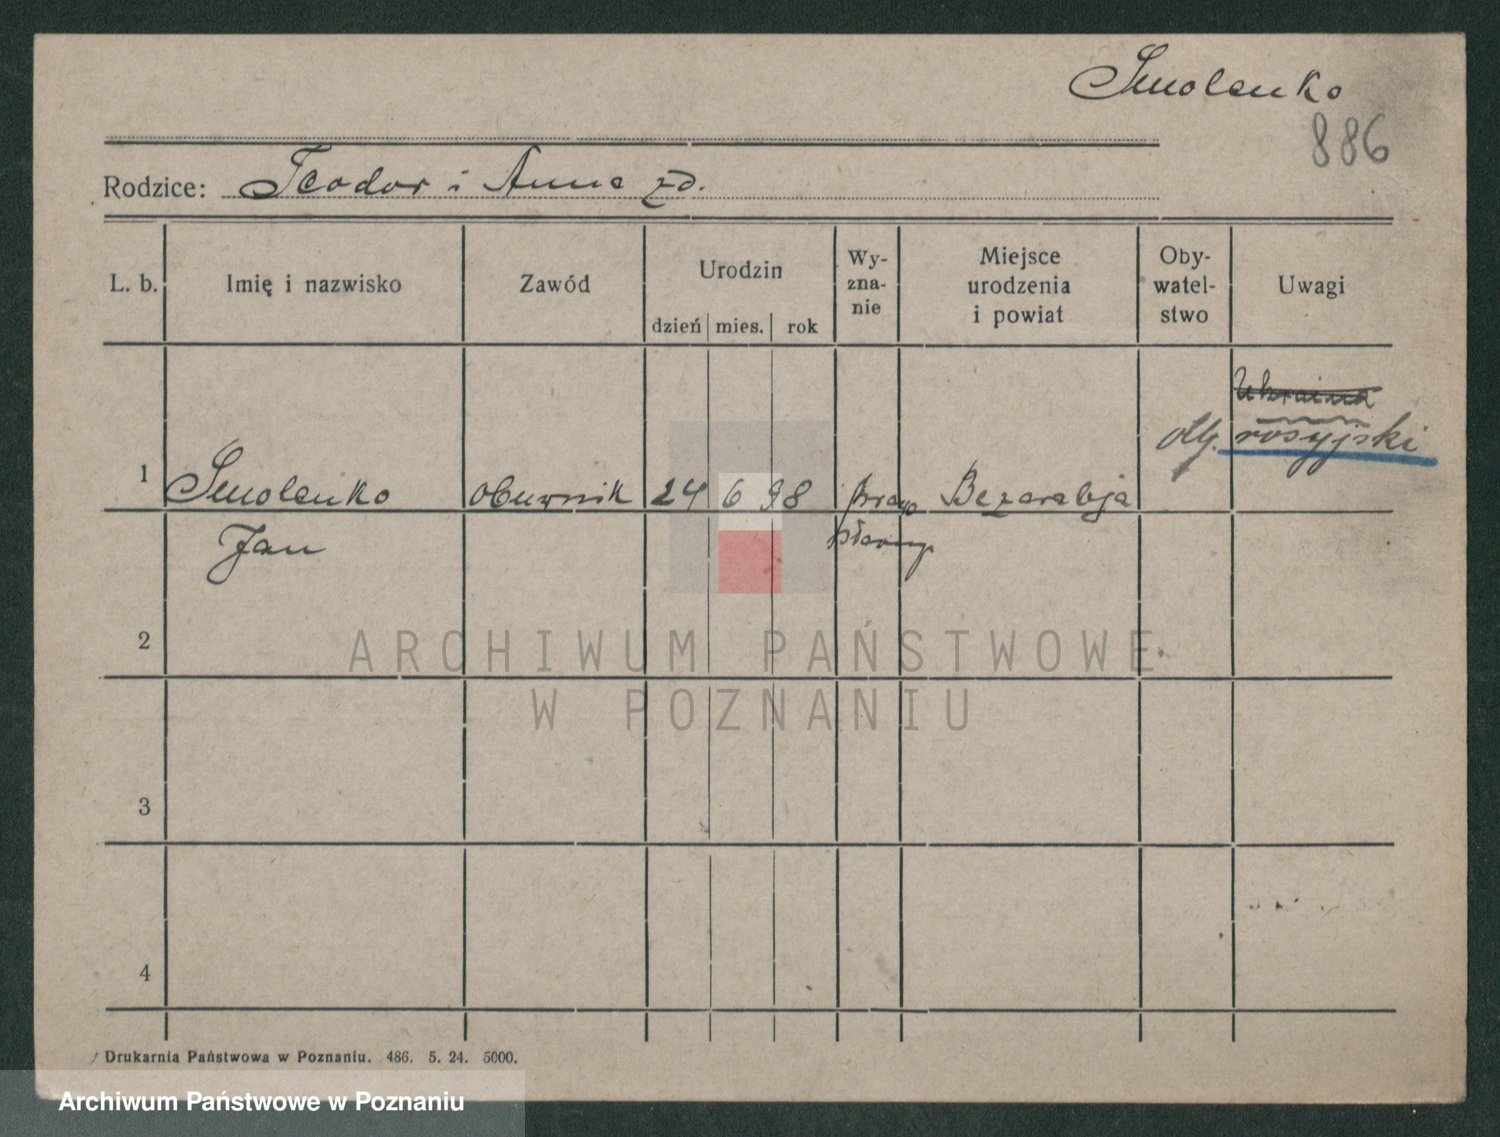 Smolenko
886
Rodzice: Teodor i Anna zd.
L. b. Imię i nazwisko Zawód Urodzin dzień mies. rok Wy-zna-nie Miejsce urodzenia i powiat Oby-watel-stwo Uwagi
Ukraina
rosyjski
1 Smolenko obuwnik 24 6 98 prawo Bezarabja
Jan sławny
2
ARCHIWUM PAŃSTWOWE
W POZNANIU
3
4
Drukarnia Państwowa w Poznaniu. 486. 5. 24. 5000.
Archiwum Państwowe w Poznaniu